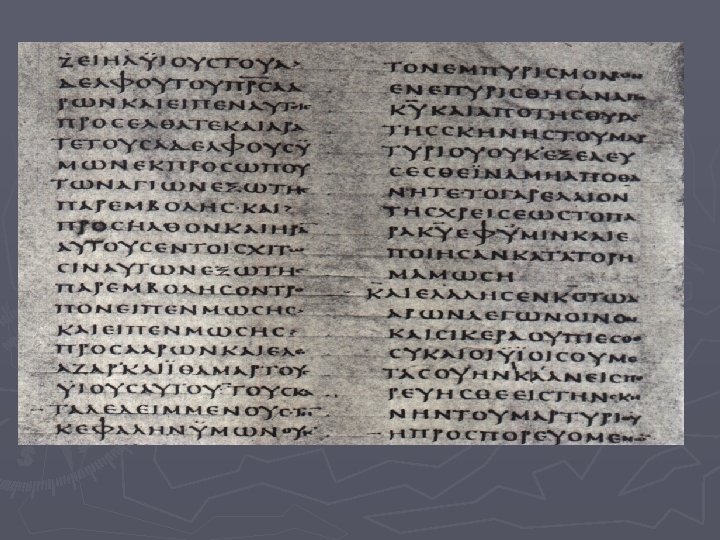 ΖΕΙΗΛΫΙΟΥϹΤΟΥΑ
ΔΕΛΦΟΥΤΟΥΠΡ̅ϹΑΑ
ΡΩΝΚΑΙΕΙΠΕΝΑΥΤΟΙϹ
ΠΡΟϹΕΛΘΑΤΕΚΑΙΑΡΑ
ΤΕΤΟΥϹΑΔΕΛΦΟΥϹΫ
ΜΩΝΕΚΠΡΟϹΩΠΟΥ
ΤΩΝΑΓΙΩΝΕΞΩΤΗϹ
ΠΑΡΕΜΒΟΛΗϹ·ΚΑΙ
ΠΡΟϹΗΛΘΟΝΚΑΙΗΡΑ
ΑΥΤΟΥϹΕΝΤΟΙϹΧΙΤΩ
ϹΙΝΑΥΤΩΝΕΞΩΤΗϹ
ΠΑΡΕΜΒΟΛΗϹΟΝΤΡΟ
ΠΟΝΕΙΠΕΝΜΩϹΗϹ·
ΚΑΙΕΙΠΕΝΜΩϹΗϹ
ΠΡΟϹΑΑΡΩΝΚΑΙΕΛΕ
ΑΖΑΡΚΑΙΪΘΑΜΑΡΤΟΥϹ
ΥΙΟΥϹΑΥΤΟΥΤΟΥϹΚΑ
ΤΑΛΕΛΕΙΜΜΕΝΟΥϹ·
ΚΕΦΑΛΗΝΫΜΩΝΟΥΚ
ΤΟΝΕΜΠΥΡΙϹΜΟΝΟΝ
ΕΝΕΠΥΡΙϹΘΗϹΑΝΑΠΟ
Κ̅Υ̅ΚΑΙΑΠΟΤΗϹΘΥΡΑϹ
ΤΗϹϹΚΗΝΗϹΤΟΥΜΑΡ
ΤΥΡΙΟΥΟΥΚΕΞΕΛΕΥ
ϹΕϹΘΕΪΝΑΜΗΑΠΟΘΑ
ΝΗΤΕ·ΤΟΓΑΡΕΛΑΙΟΝ
ΤΗϹΧΡΕΙϹΕΩϹΤΟΠΑ
ΡΑΚ̅Υ̅ΕΦΫΜΙΝΚΑΙΕ
ΠΟΙΗϹΑΝΚΑΤΑΤΟΡΗ
ΜΑΜΩϹΗ
ΚΑΙΕΛΑΛΗϹΕΝΚ̅Ϲ̅ΤΩΑ
ΑΡΩΝΛΕΓΩΝΟΙΝΟΝ
ΚΑΙϹΙΚΕΡΑΟΥΠΙΕϹΘΕ
ϹΥΚΑΙΟΙΫΙΟΙϹΟΥΜΕ
ΤΑϹΟΥΗΝΙΚΑΑΝΕΙϹΠΟ
ΡΕΥΗϹΘΕΕΙϹΤΗΝϹΚΗ
ΝΗΝΤΟΥΜΑΡΤΥΡΙΟΥ
ΗΠΡΟϹΠΟΡΕΥΟΜΕΝΩΝ